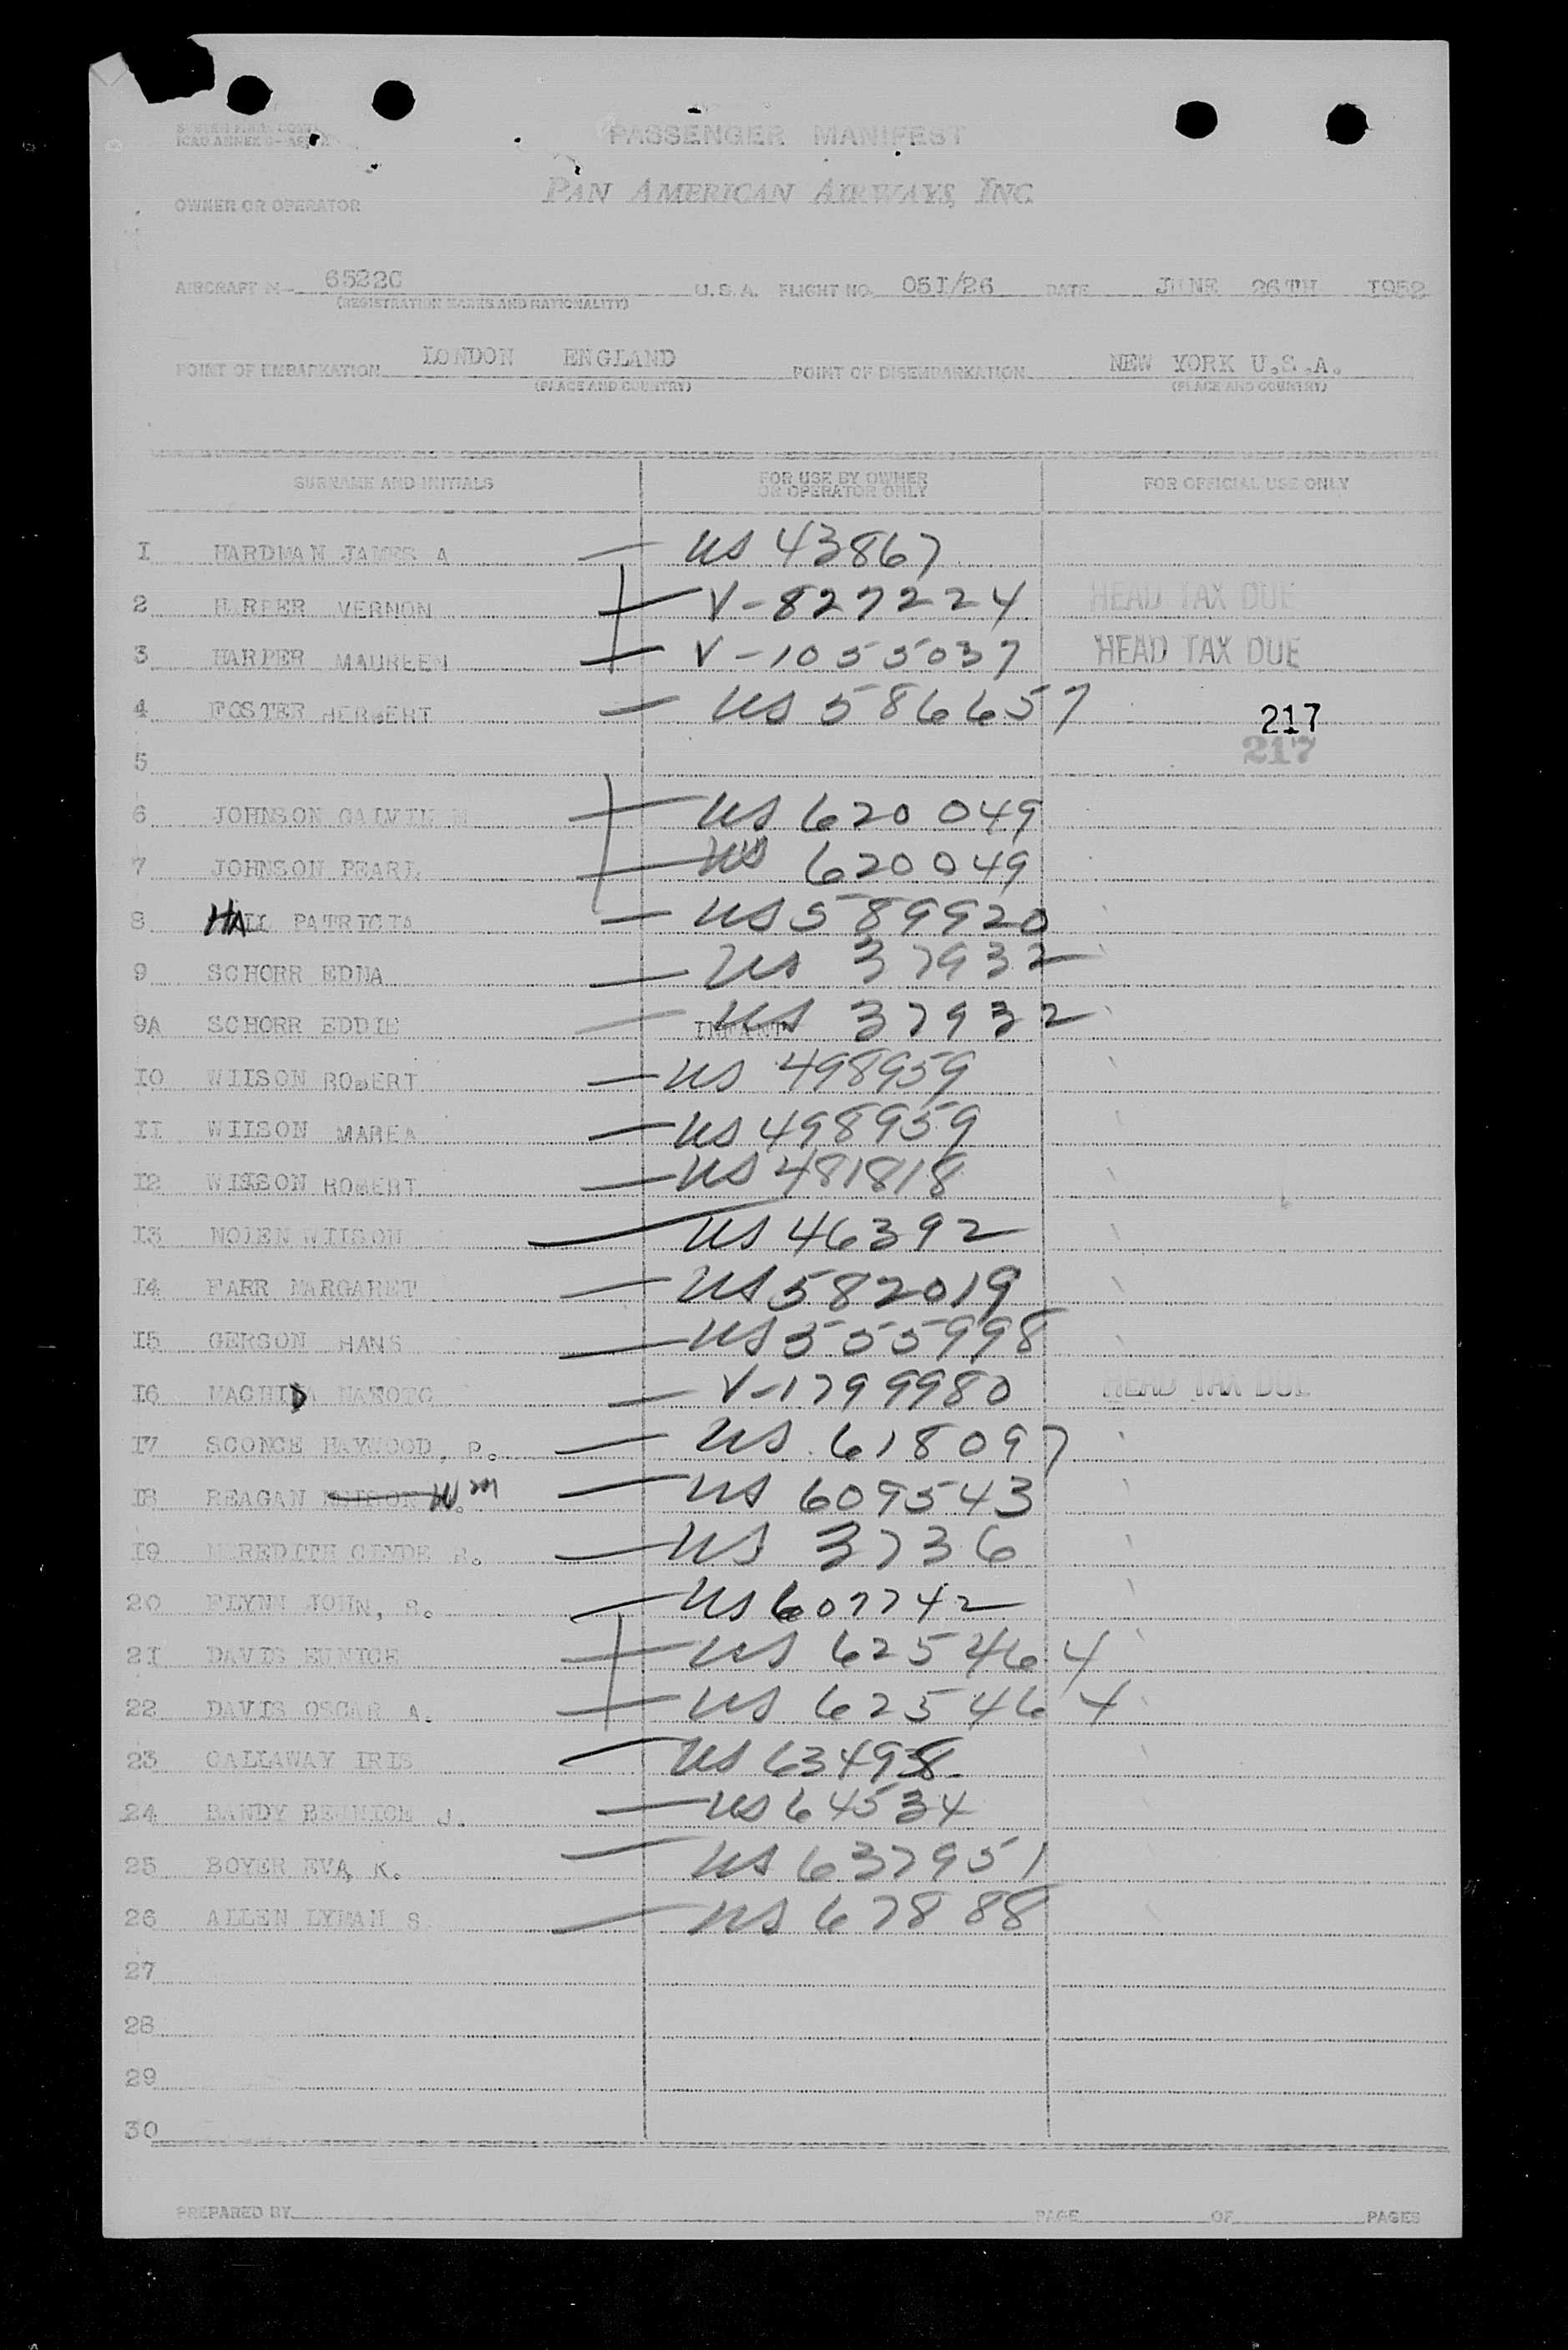 PASSENGER MANIFEST
PAN AMERICAN AIRWAYS, INC.
OWNER OR OPERATOR
AIRCRAFT N- 6522C U.S.A. FLIGHT NO. 05I/26 DATE JUNE 26TH I952
(REGISTRATION MARKS AND NATIONALITY)
POINT OF EMBARKATION LONDON ENGLAND POINT OF DISEMBARKATION NEW YORK U.S.A.
(PLACE AND COUNTRY) (PLACE AND COUNTRY)
SURNAME AND INITIALS FOR USE BY OWNER OR OPERATOR ONLY FOR OFFICIAL USE ONLY
I HARDMAN JAMES A US 43867
2 HARPER VERNON V-827224 HEAD TAX DUE
3 HARPER MAUREEN V-1055037 HEAD TAX DUE
4 FOSTER HERBERT US 586657 217
5 217
6 JOHNSON US 620049
7 JOHNSON PEARL US 620049
8 HALL PATRICIA US 589920
9 SCHORR EDNA US 37932
9A SCHORR EDDIE INFANT US 37932
IO WILSON ROBERT US 498959
II WILSON MAREA US 498959
I2 WILSON ROBERT US 481818
I3 NOLEN WILSON US 46392
I4 FARR MARGARET US 582019
I5 GERSON HANS US 555998
I6 MACHIDA MAKOTO V-1799980 HEAD TAX DUE
I7 SCONCE HAYWOOD, P. US 618097
I8 REAGAN Wm US 609543
I9 MEREDITH CLYDE R. US 3736
20 FLYNN JOHN, S. US 607742
2I DAVIS EUNICE US 625464
22 DAVIS OSCAR A. US 625464
23 CALLAWAY IRIS US 634938
24 BANDY BERNICE J. US 64534
25 BOYER EVA, K. US 637951
26 ALLEN LYMAN S US 67888
27
28
29
30
PREPARED BY PAGE OF PAGES